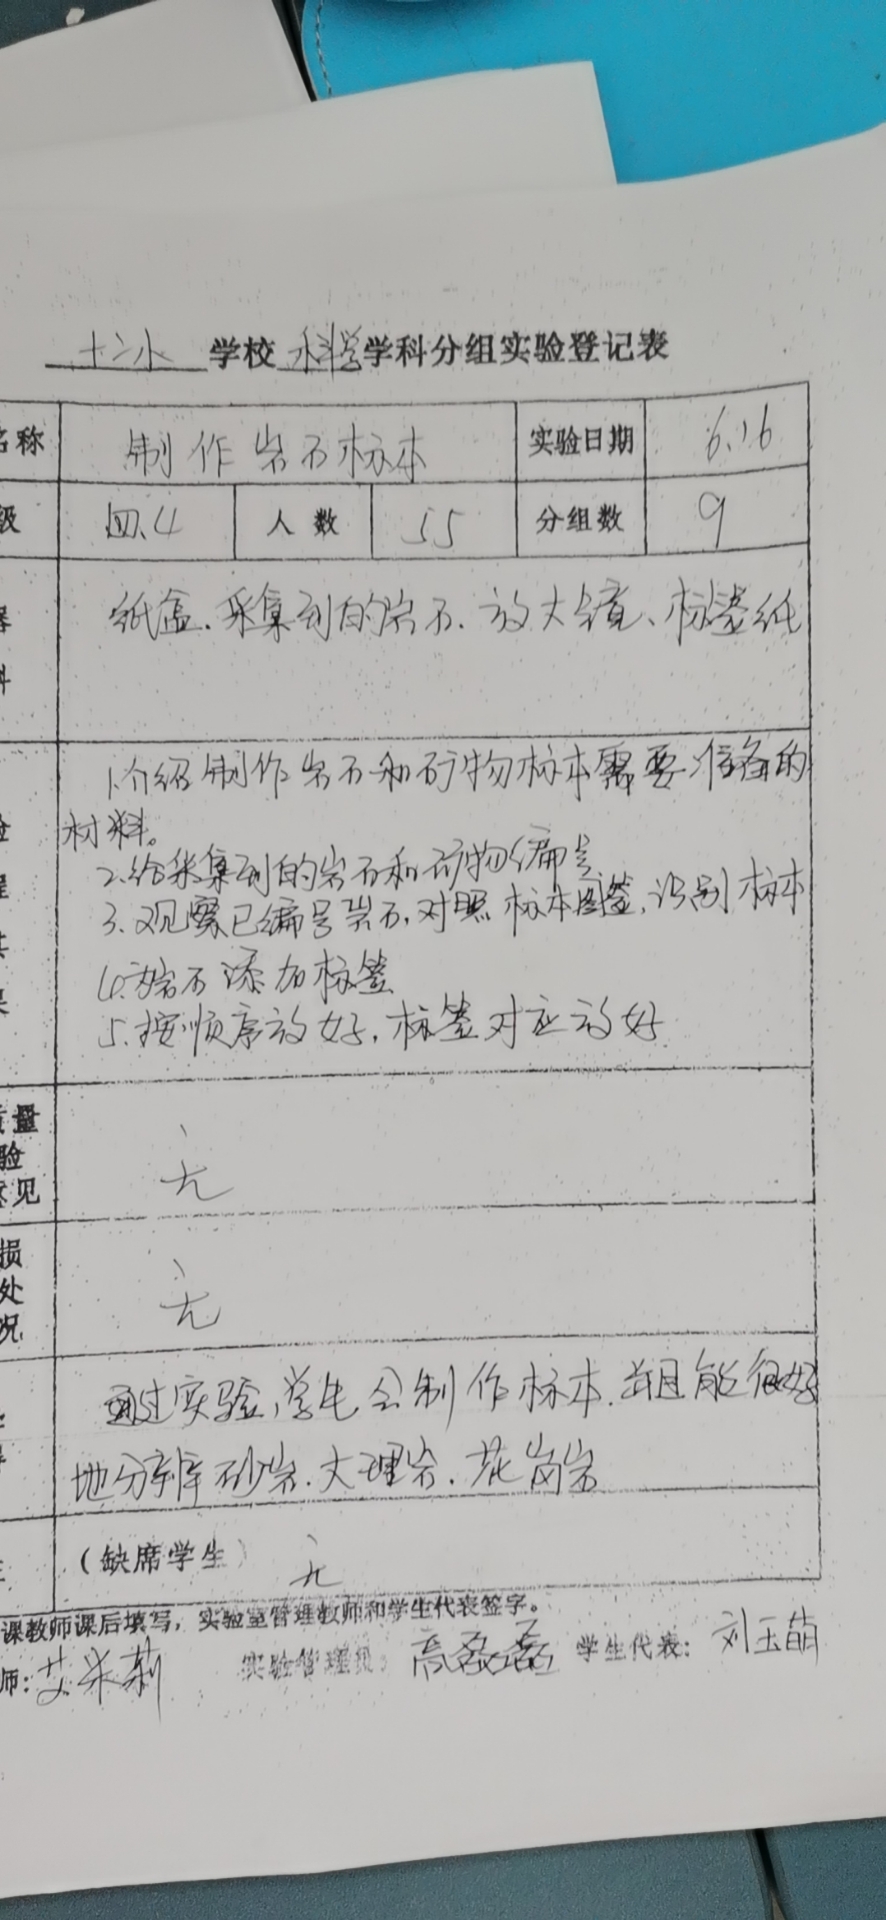 十二小 学校 科学 学科分组实验登记表
名称 制作岩石标本 实验日期 6.16
级 四.4 人数 55 分组数 9
器 纸盒.采集到的岩石.放大镜、标签纸
料
1.介绍制作岩石和矿物标本需要准备的
验 材料。
2.给采集到的岩石和矿物编号
程 3.观察已编号岩石,对照标本图鉴,识别标本
4.为岩石添加标签
5.按顺序放好,标签对应放好
质量
验 无
意见
损
处 无
况
通过实验,学生会制作标本.并且能很好
地分辨砂岩.大理岩.花岗岩
(缺席学生) 无
课教师课后填写,实验室管理教师和学生代表签字。
师:艾米莉 实验管理员: 高磊磊 学生代表: 刘玉萌